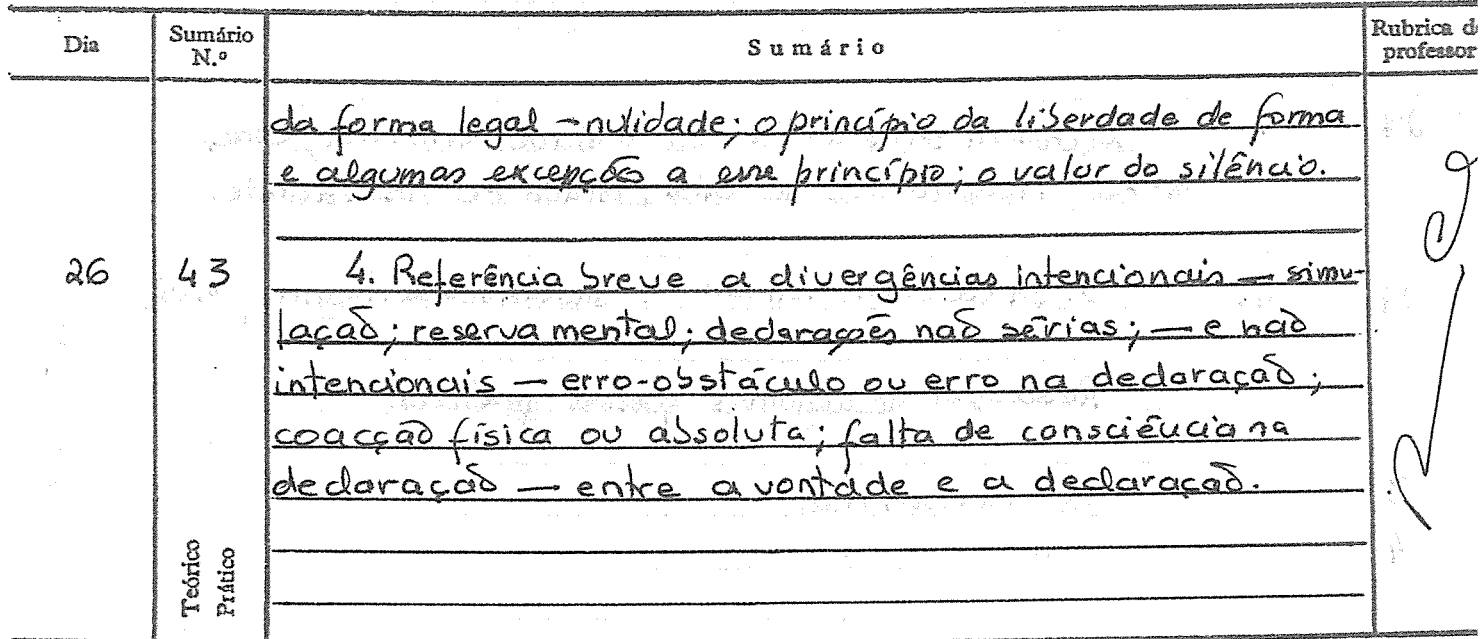 Dia
Sumário N.º
Sumário
Rubrica do professor
da forma legal - nulidade; o princípio da liberdade de forma
e algumas excepções a esse princípio; o valor do silêncio.
26
43
4. Referência breve a divergências intencionais — simu-
lação; reserva mental; declarações não sérias; — e não
intencionais — erro-obstáculo ou erro na declaração;
coacção física ou absoluta; falta de consciência na
declaração — entre a vontade e a declaração.
Teórico
Prático